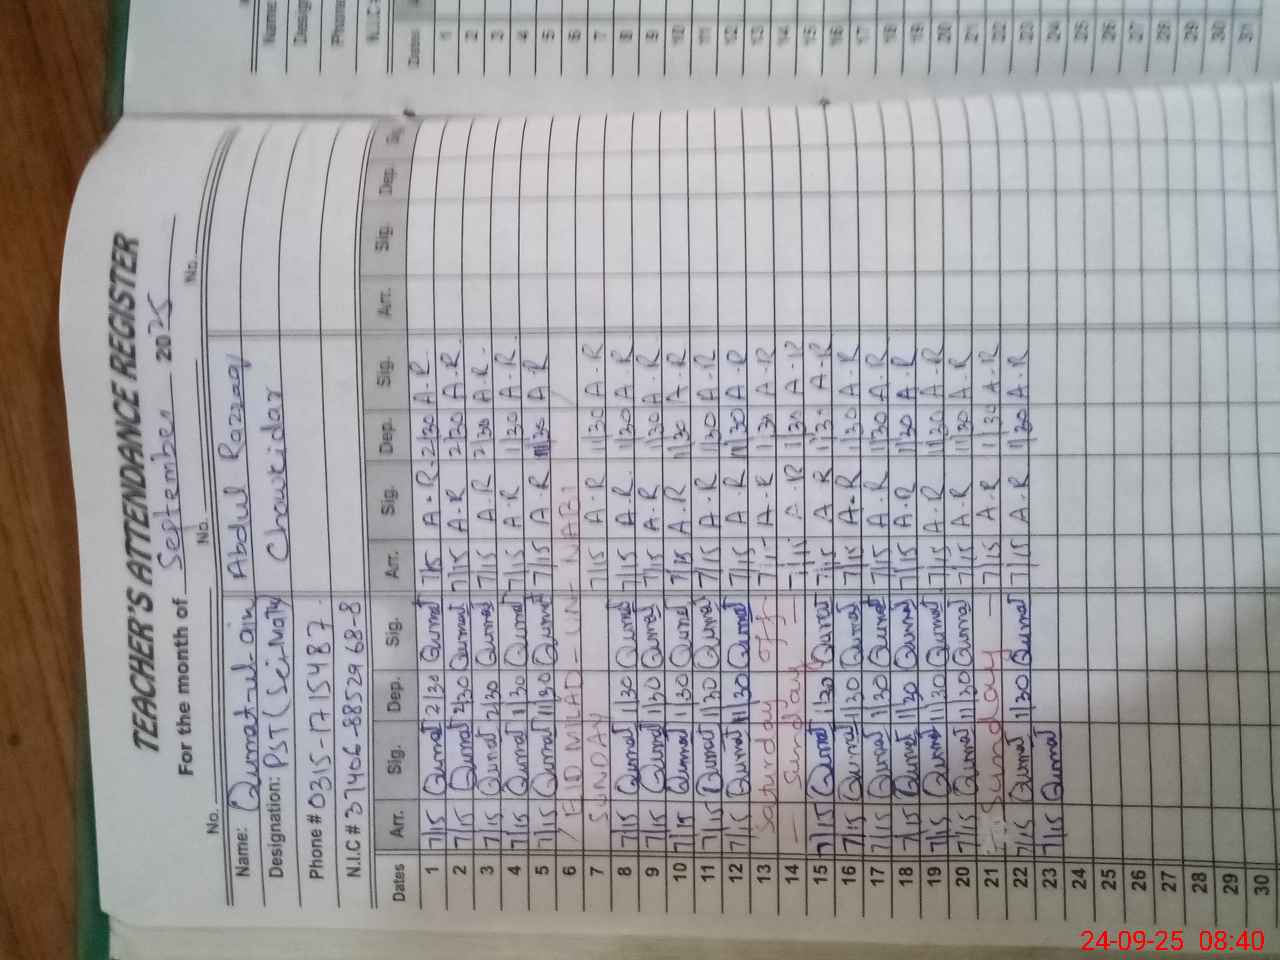 TEACHER'S ATTENDANCE REGISTER
For the month of September 2025
No. No. No.
Name: Qurrat-ul-ain Abdul Razzaq
Designation: PST (Sci-Math) Chowkidar
Phone # 0315-1715487
N.I.C # 37406-8852968-8
Dates Arr. Sig. Dep. Sig. Arr. Sig. Dep. Sig. Arr. Sig. Dep.
1 7/15 Qurrat 2/30 Qurrat 7/15 A.R. 2/30 A.R.
2 7/15 Qurrat 2/30 Qurrat 7/15 A.R 2/30 A.R.
3 7/15 Qurrat 2/30 Qurrat 7/15 A.R 2/30 A.R.
4 7/15 Qurrat 1/30 Qurrat 7/15 A.R 1/30 A.R.
5 7/15 Qurrat 11/30 Qurrat 7/15 A.R 11/30 A.R
6 EID MILAD-UN-NABI
7 SUNDAY 7/15 A.R 1/30 A.R
8 7/15 Qurrat 1/30 Qurrat 7/15 A.R. 1/30 A.R
9 7/15 Qurrat 1/30 Qurrat 7/15 A.R 1/30 A.R.
10 7/15 Qurrat 1/30 Qurrat 7/15 A.R 11/30 A.R
11 7/15 Qurrat 1/30 Qurrat 7/15 A.R 1/30 A.R
12 7/15 Qurrat 11/30 Qurrat 7/15 A.R 11/30 A.R
13 Saturday off 7/15 A.R 1/30 A.R
14 — Sunday — 7/15 A.R 1/30 A.R
15 7/15 Qurrat 1/30 Qurrat 7/15 A.R 1/30 A.R
16 7/15 Qurrat 1/30 Qurrat 7/15 A.R 1/30 A.R
17 7/15 Qurrat 1/30 Qurrat 7/15 A.R 1/30 A.R
18 7/15 Qurrat 11/30 Qurrat 7/15 A.R 1/30 A.R
19 7/15 Qurrat 1/30 Qurrat 7/15 A.R 1/30 A.R
20 7/15 Qurrat 11/30 Qurrat 7/15 A.R 11/30 A.R
21 Sunday — 7/15 A.R 1/30 A.R
22 7/15 Qurrat 1/30 Qurrat 7/15 A.R 11/30 A.R
23 7/15 Qurrat
24
25
26
27
28
29
30
Name:
Phone
Dates
1
2
3
4
5
6
7
8
9
10
11
12
13
14
15
16
17
18
19
20
21
22
23
24
25
26
27
28
29
30
31
24-09-25 08:40